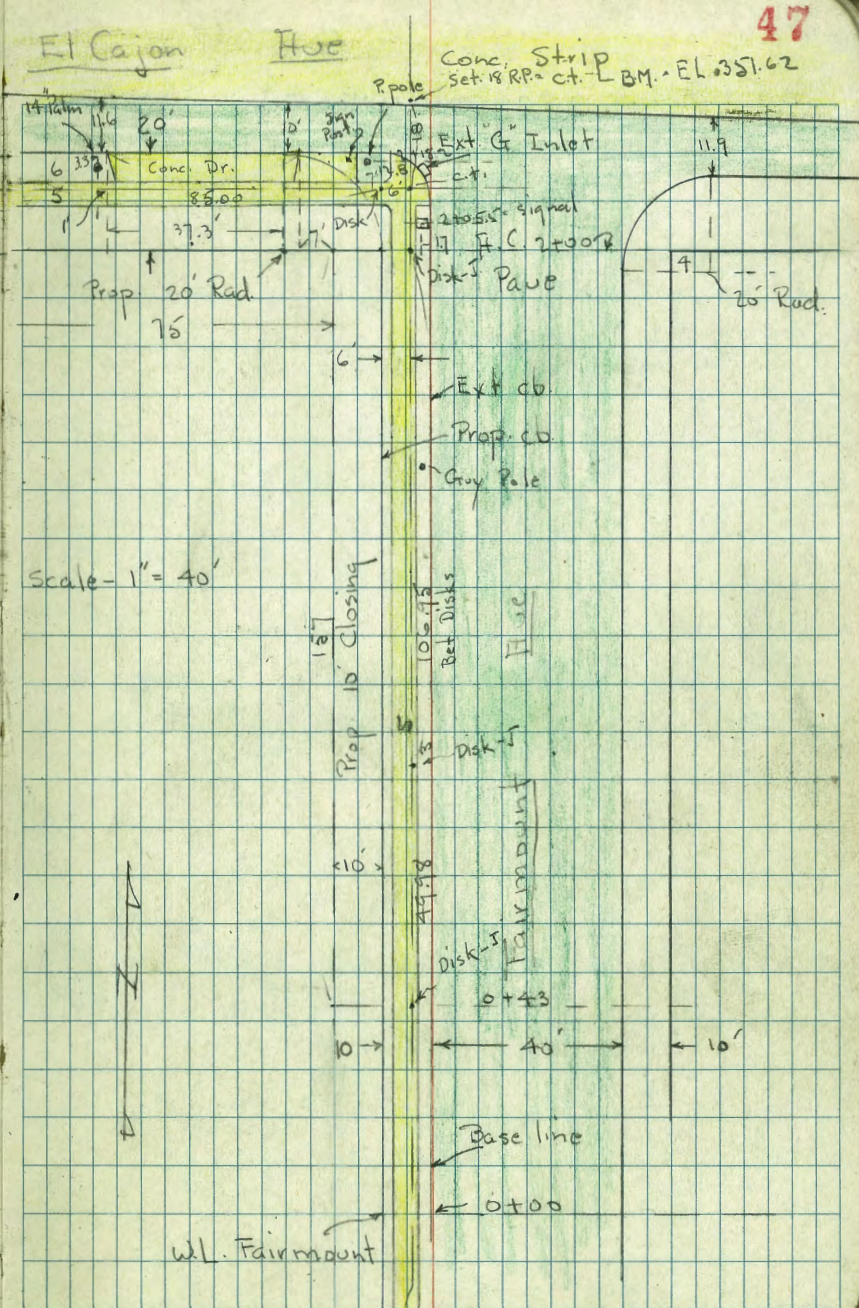 47
El Cajon Ave
Conc. Strip
Set. 18 R.P. = c.t. - L B.M. = EL. 351.62
P. pole
14" Palm
11.6
20'
Sign Post
18
Ext "G" Inlet
11.9
6
3.37
Conc. Dr.
c.t.
5
85.00
6'
1'
Disk
2+05.5 = signal
37.3'
7'
17
2+00
Disk-J
Pave
4
Prop. 20' Rad.
20' Rad.
75'
6'
Ext cb.
Prop. cb.
Guy Pole
Scale - 1" = 40'
157
Prop 10' Closing
106.95
Bet Disks
Ave
5
3
Disk-J
Fairmount
10'
49.98
Disk-J
0+43
10
40'
10'
Base line
0+00
W.L. Fairmount